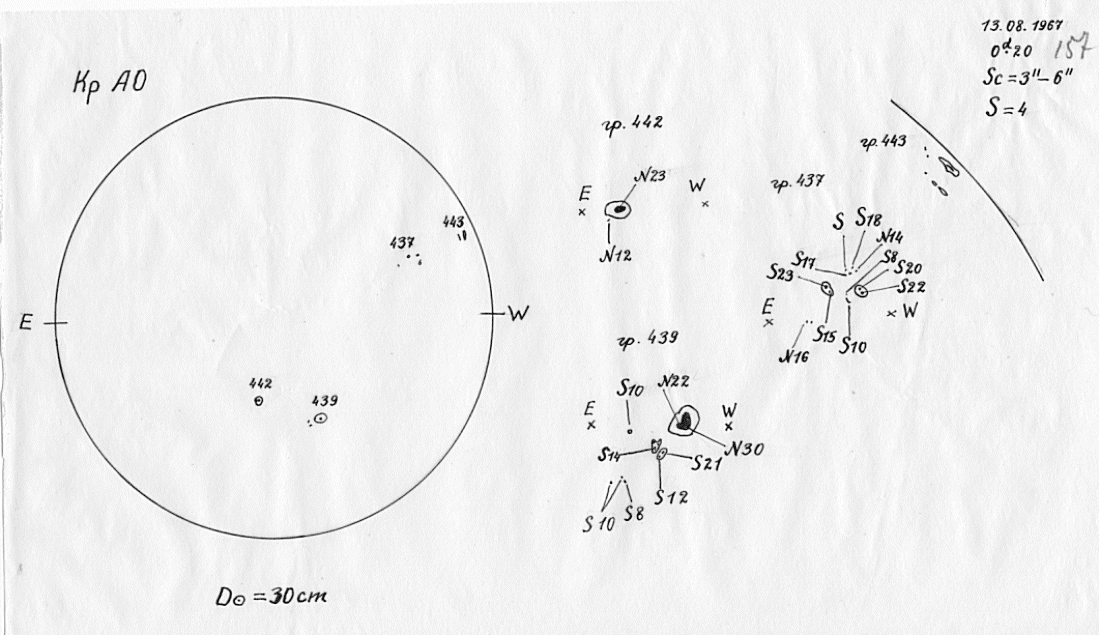 13.08.1967
0ᵈ.20
157
Sc = 3"–6"
S = 4
Кр АО
443
437
E
W
442
439
D⊙ = 30cm
гр. 442
N23
E
W
×
×
N12
гр. 443
гр. 437
S
S18
N14
S17
S8
S20
S23
S22
E
×
× W
S15
S10
N16
гр. 439
S10
N22
E
W
×
×
N30
S14
S21
S12
S10
S8